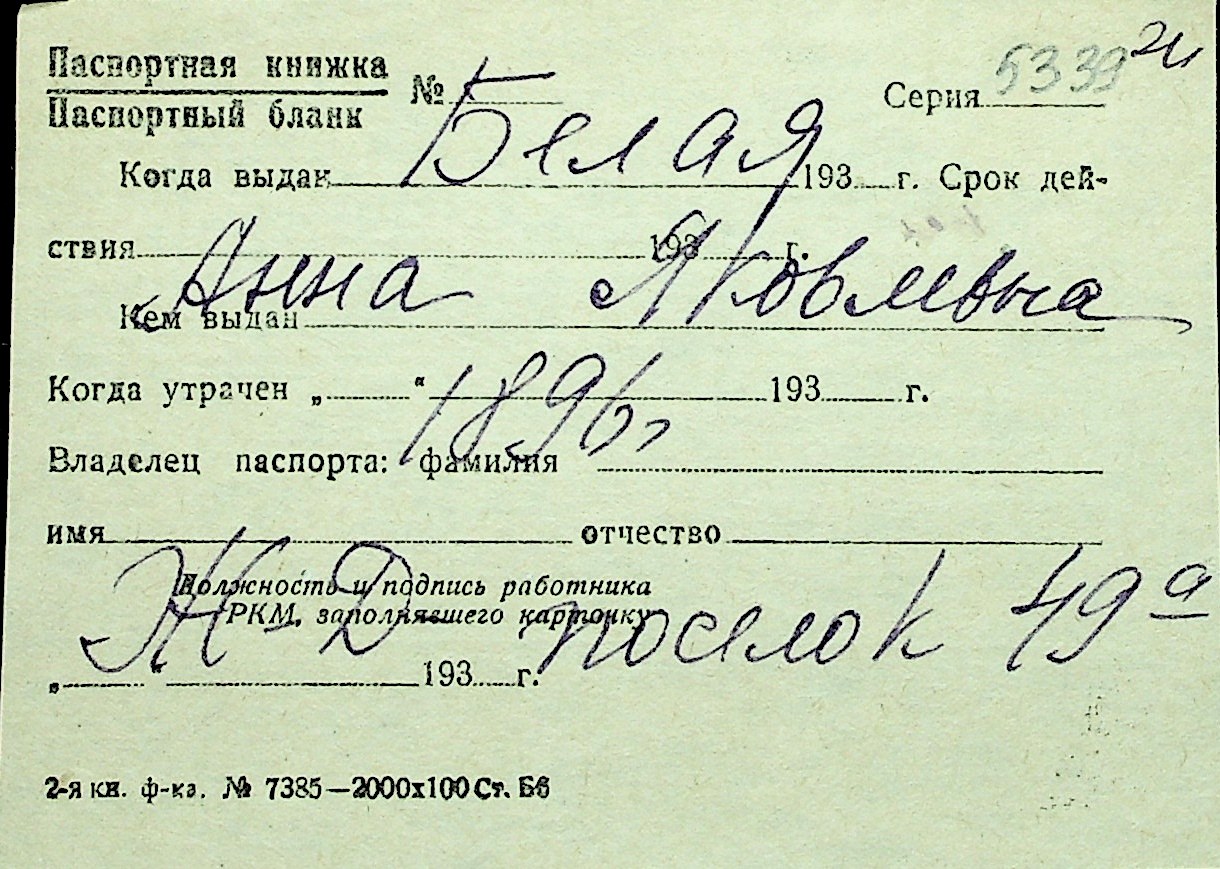 Паспортная книжка
Паспортный бланк
№
Серия 5339
Белая
Когда выдан 193 г. Срок дей-
ствия 193 г.
Анна Яковлевна
Кем выдан
Когда утрачен „ “ 193 г.
1896 г
Владелец паспорта: фамилия
имя отчество
Должность и подпись работника
РКМ, заполнявшего карточку
Ж-Д поселок 49а
„ “ 193 г.
2-я кн. ф-ка. № 7385—2000х100 Ст. Бб